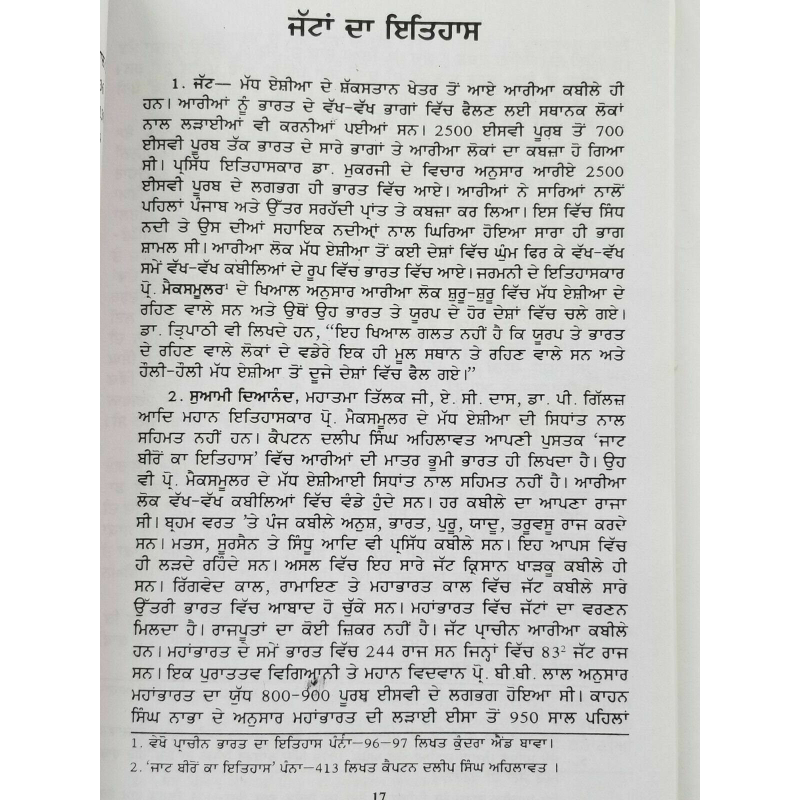 ਜੱਟਾਂ ਦਾ ਇਤਿਹਾਸ
1. ਜੱਟ— ਮੱਧ ਏਸ਼ੀਆ ਦੇ ਸ਼ੱਕਸਤਾਨ ਖੇਤਰ ਤੋਂ ਆਏ ਆਰੀਆ ਕਬੀਲੇ ਹੀ
ਹਨ। ਆਰੀਆਂ ਨੂੰ ਭਾਰਤ ਦੇ ਵੱਖ-ਵੱਖ ਭਾਗਾਂ ਵਿੱਚ ਫੈਲਣ ਲਈ ਸਥਾਨਕ ਲੋਕਾਂ
ਨਾਲ ਲੜਾਈਆਂ ਵੀ ਕਰਨੀਆਂ ਪਈਆਂ ਸਨ। 2500 ਈਸਵੀ ਪੂਰਬ ਤੋਂ 700
ਈਸਵੀ ਪੂਰਬ ਤੱਕ ਭਾਰਤ ਦੇ ਸਾਰੇ ਭਾਗਾਂ ਤੇ ਆਰੀਆ ਲੋਕਾਂ ਦਾ ਕਬਜ਼ਾ ਹੋ ਗਿਆ
ਸੀ। ਪ੍ਰਸਿੱਧ ਇਤਿਹਾਸਕਾਰ ਡਾ. ਮੁਕਰਜੀ ਦੇ ਵਿਚਾਰ ਅਨੁਸਾਰ ਆਰੀਏ 2500
ਈਸਵੀ ਪੂਰਬ ਦੇ ਲਗਭਗ ਹੀ ਭਾਰਤ ਵਿੱਚ ਆਏ। ਆਰੀਆਂ ਨੇ ਸਾਰਿਆਂ ਨਾਲੋਂ
ਪਹਿਲਾਂ ਪੰਜਾਬ ਅਤੇ ਉੱਤਰ ਸਰਹੱਦੀ ਪ੍ਰਾਂਤ ਤੇ ਕਬਜ਼ਾ ਕਰ ਲਿਆ। ਇਸ ਵਿੱਚ ਸਿੰਧ
ਨਦੀ ਤੇ ਉਸ ਦੀਆਂ ਸਹਾਇਕ ਨਦੀਆਂ ਨਾਲ ਘਿਰਿਆ ਹੋਇਆ ਸਾਰਾ ਹੀ ਭਾਗ
ਸ਼ਾਮਲ ਸੀ। ਆਰੀਆ ਲੋਕ ਮੱਧ ਏਸ਼ੀਆ ਤੋਂ ਕਈ ਦੇਸ਼ਾਂ ਵਿੱਚ ਘੁੰਮ ਫਿਰ ਕੇ ਵੱਖ-ਵੱਖ
ਸਮੇਂ ਵੱਖ-ਵੱਖ ਕਬੀਲਿਆਂ ਦੇ ਰੂਪ ਵਿੱਚ ਭਾਰਤ ਵਿੱਚ ਆਏ। ਜਰਮਨੀ ਦੇ ਇਤਿਹਾਸਕਾਰ
ਪ੍ਰੋ. ਮੈਕਸਮੂਲਰ¹ ਦੇ ਖਿਆਲ ਅਨੁਸਾਰ ਆਰੀਆ ਲੋਕ ਸ਼ੁਰੂ-ਸ਼ੁਰੂ ਵਿੱਚ ਮੱਧ ਏਸ਼ੀਆ ਦੇ
ਰਹਿਣ ਵਾਲੇ ਸਨ ਅਤੇ ਉਥੋਂ ਉਹ ਭਾਰਤ ਤੇ ਯੂਰਪ ਦੇ ਹੋਰ ਦੇਸ਼ਾਂ ਵਿੱਚ ਚਲੇ ਗਏ।
ਡਾ. ਤ੍ਰਿਪਾਠੀ ਵੀ ਲਿਖਦੇ ਹਨ, “ਇਹ ਖਿਆਲ ਗਲਤ ਨਹੀਂ ਹੈ ਕਿ ਯੂਰਪ ਤੇ ਭਾਰਤ
ਦੇ ਰਹਿਣ ਵਾਲੇ ਲੋਕਾਂ ਦੇ ਵਡੇਰੇ ਇਕ ਹੀ ਮੂਲ ਸਥਾਨ ਤੇ ਰਹਿਣ ਵਾਲੇ ਸਨ ਅਤੇ
ਹੌਲੀ-ਹੌਲੀ ਮੱਧ ਏਸ਼ੀਆ ਤੋਂ ਦੂਜੇ ਦੇਸ਼ਾਂ ਵਿੱਚ ਫੈਲ ਗਏ।”
2. ਸੁਆਮੀ ਦਿਆਨੰਦ, ਮਹਾਤਮਾ ਤਿੱਲਕ ਜੀ, ਏ. ਸੀ. ਦਾਸ, ਡਾ. ਪੀ. ਗਿੱਲਜ਼
ਆਦਿ ਮਹਾਨ ਇਤਿਹਾਸਕਾਰ ਪ੍ਰੋ. ਮੈਕਸਮੂਲਰ ਦੇ ਮੱਧ ਏਸ਼ੀਆ ਦੀ ਸਿਧਾਂਤ ਨਾਲ
ਸਹਿਮਤ ਨਹੀਂ ਹਨ। ਕੈਪਟਨ ਦਲੀਪ ਸਿੰਘ ਅਹਿਲਾਵਤ ਆਪਣੀ ਪੁਸਤਕ ‘ਜਾਟ
ਬੀਰੋਂ ਕਾ ਇਤਿਹਾਸ’ ਵਿੱਚ ਆਰੀਆਂ ਦੀ ਮਾਤਰ ਭੂਮੀ ਭਾਰਤ ਹੀ ਲਿਖਦਾ ਹੈ। ਉਹ
ਵੀ ਪ੍ਰੋ. ਮੈਕਸਮੂਲਰ ਦੇ ਮੱਧ ਏਸ਼ੀਆਈ ਸਿਧਾਂਤ ਨਾਲ ਸਹਿਮਤ ਨਹੀਂ ਹੈ। ਆਰੀਆ
ਲੋਕ ਵੱਖ-ਵੱਖ ਕਬੀਲਿਆਂ ਵਿੱਚ ਵੰਡੇ ਹੁੰਦੇ ਸਨ। ਹਰ ਕਬੀਲੇ ਦਾ ਆਪਣਾ ਰਾਜਾ
ਸੀ। ਬ੍ਰਹਮ ਵਰਤ ’ਤੇ ਪੰਜ ਕਬੀਲੇ ਅਨੁਸ਼, ਭਾਰਤ, ਪੁਰੂ, ਯਾਦੂ, ਤਰੂਵਸੂ ਰਾਜ ਕਰਦੇ
ਸਨ। ਮਤਸ, ਸੂਰਸੈਨ ਤੇ ਸਿੰਧੂ ਆਦਿ ਵੀ ਪ੍ਰਸਿੱਧ ਕਬੀਲੇ ਸਨ। ਇਹ ਆਪਸ ਵਿੱਚ
ਹੀ ਲੜਦੇ ਰਹਿੰਦੇ ਸਨ। ਅਸਲ ਵਿੱਚ ਇਹ ਸਾਰੇ ਜੱਟ ਕ੍ਰਿਸਾਨ ਖਾੜਕੂ ਕਬੀਲੇ ਹੀ
ਸਨ। ਰਿੱਗਵੇਦ ਕਾਲ, ਰਾਮਾਇਣ ਤੇ ਮਹਾਭਾਰਤ ਕਾਲ ਵਿੱਚ ਜੱਟ ਕਬੀਲੇ ਸਾਰੇ
ਉੱਤਰੀ ਭਾਰਤ ਵਿੱਚ ਆਬਾਦ ਹੋ ਚੁੱਕੇ ਸਨ। ਮਹਾਂਭਾਰਤ ਵਿੱਚ ਜੱਟਾਂ ਦਾ ਵਰਣਨ
ਮਿਲਦਾ ਹੈ। ਰਾਜਪੂਤਾਂ ਦਾ ਕੋਈ ਜ਼ਿਕਰ ਨਹੀਂ ਹੈ। ਜੱਟ ਪ੍ਰਾਚੀਨ ਆਰੀਆ ਕਬੀਲੇ
ਹਨ। ਮਹਾਂਭਾਰਤ ਦੇ ਸਮੇਂ ਭਾਰਤ ਵਿੱਚ 244 ਰਾਜ ਸਨ ਜਿਨ੍ਹਾਂ ਵਿੱਚ 83² ਜੱਟ ਰਾਜ
ਸਨ। ਇਕ ਪੁਰਾਤਤਵ ਵਿਗਿਆਨੀ ਤੇ ਮਹਾਨ ਵਿਦਵਾਨ ਪ੍ਰੋ. ਬੀ.ਬੀ. ਲਾਲ ਅਨੁਸਾਰ
ਮਹਾਂਭਾਰਤ ਦਾ ਯੁੱਧ 800-900 ਪੂਰਬ ਈਸਵੀ ਦੇ ਲਗਭਗ ਹੋਇਆ ਸੀ। ਕਾਹਨ
ਸਿੰਘ ਨਾਭਾ ਦੇ ਅਨੁਸਾਰ ਮਹਾਂਭਾਰਤ ਦੀ ਲੜਾਈ ਈਸਾ ਤੋਂ 950 ਸਾਲ ਪਹਿਲਾਂ
1. ਵੇਖੋ ਪ੍ਰਾਚੀਨ ਭਾਰਤ ਦਾ ਇਤਿਹਾਸ ਪੰਨਾ—96-97 ਲਿਖਤ ਕੁੰਦਰਾ ਐਂਡ ਬਾਵਾ।
2. ‘ਜਾਟ ਬੀਰੋਂ ਕਾ ਇਤਿਹਾਸ’ ਪੰਨਾ—413 ਲਿਖਤ ਕੈਪਟਨ ਦਲੀਪ ਸਿੰਘ ਅਹਿਲਾਵਤ ।
17